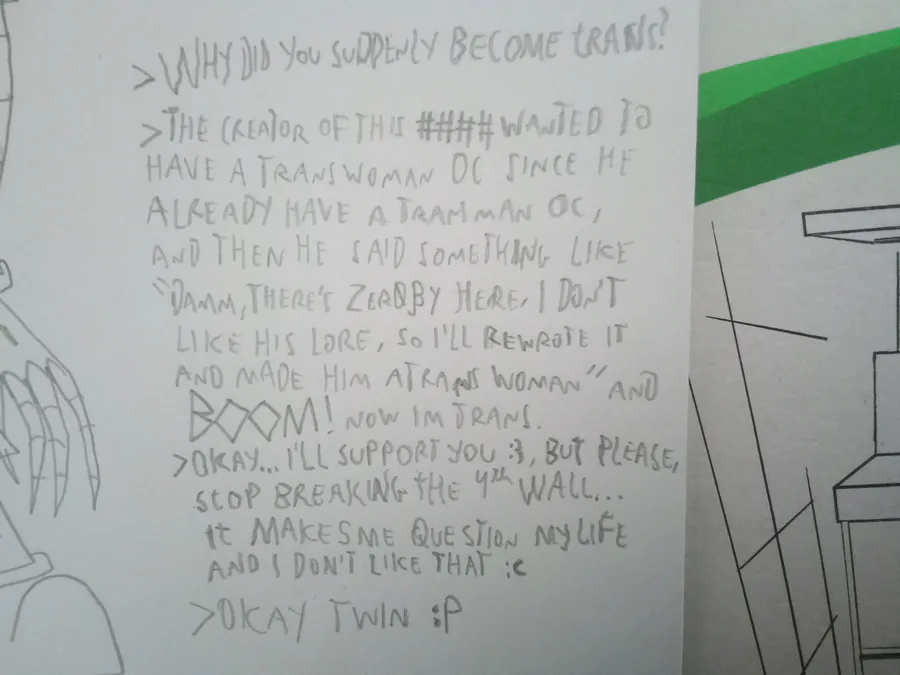 >WHY DID YOU SUDDENLY BECOME TRANS?
>THE CREATOR OF THIS #### WANTED TO
HAVE A TRANSWOMAN OC SINCE HE
ALREADY HAVE A TRAMMAN OC,
AND THEN HE SAID SOMETHING LIKE
"DAMM, THERE'S ZEROBY HERE, I DON'T
LIKE HIS LORE, SO I'LL REWROTE IT
AND MADE HIM A TRANS WOMAN" AND
BOOM! NOW IM TRANS.
>OKAY... I'LL SUPPORT YOU :3, BUT PLEASE,
STOP BREAKING THE 4th WALL...
It MAKES ME QUESTION MY LIFE
AND I DON'T LIKE THAT :c
>OKAY TWIN :P